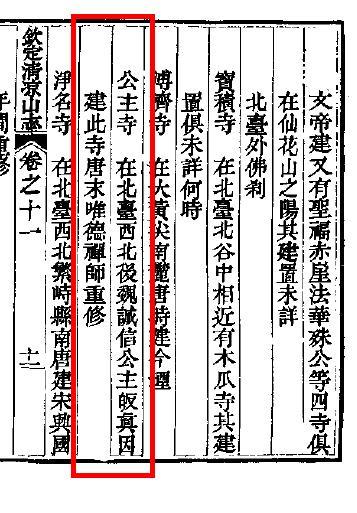 文帝建又有聖福赤崖法華殊公等四寺俱
在仙花山之陽其建置未詳
北臺外佛刹
寶積寺 在北臺北谷中相近有木瓜寺其建
置俱未詳何時
博濟寺 在大黃尖南麓唐時建今堙
公主寺 在北臺西北後魏誠信公主皈眞因
建此寺唐末唯德禪師重修
淨名寺 在北臺西北繁峙縣南唐建宋興國
欽定清涼山志 卷之十一 十二
年間重修